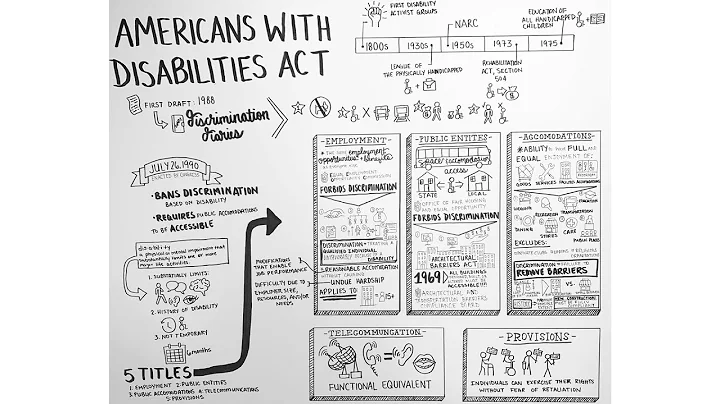 AMERICANS WITH
DISABILITIES ACT
FIRST DISABILITY
ACTIVIST GROUPS
NARC
EDUCATION OF
ALL HANDICAPPED
CHILDREN
1800s
1930s
1950s
1973
1975
LEAGUE OF
THE PHYSICALLY HANDICAPPED
REHABILITATION
ACT, SECTION
504
FIRST DRAFT: 1988
Discrimination
Diaries
JULY 26, 1990
• BANS DISCRIMINATION
BASED ON DISABILITY
• REQUIRES PUBLIC ACCOMODATIONS
TO BE ACCESSIBLE
a physical or mental impairment that
substantially limits one or more
major life activities.
1. SUBSTANTIALLY LIMITS:
2. HISTORY OF DISABILITY
3. NOT TEMPORARY
6 months
5 TITLES
1. EMPLOYMENT 2. PUBLIC ENTITIES
3. PUBLIC ACCOMODATIONS 4. TELECOMMUNICATIONS
5. PROVISIONS
MODIFICATIONS
THAT ENABLE
JOB PERFORMANCE
DIFFICULTY DUE TO
EMPLOYER SIZE,
RESOURCES, AND/OR
NEEDS
- EMPLOYMENT -
employment
opportunities
FORBIDS DISCRIMINATION
DISCRIMINATION
QUALIFIED INDIVIDUAL
DISABILITY
REASONABLE ACCOMODATION
WITHOUT CAUSING
UNDUE HARDSHIP
APPLIES TO
15+
- PUBLIC ENTITES -
access
STATE
LOCAL
OFFICE OF FAIR HOUSING
AND EQUAL OPPORTUNITY
FORBIDS DISCRIMINATION
ARCHITECTURAL
BARRIERS ACT
1969
ALL BUILDINGS
ACCESSIBLE!!!
- ACCOMODATIONS -
ABILITY to have FULL and
EQUAL ENJOYMENT OF:
GOODS SERVICES FACILITIES ACCOMODATIONS
RECREATION
TRANSPORTATION
DINING
STORES
CARE
PUBLIC PLACES
EXCLUDES:
PRIVATE CLUBS
RELIGIOUS
ORGANIZATIONS
DISCRIMINATION = FAILURE TO
REMOVE BARRIERS
VS.
NEW CONSTRUCTION
- TELECOMMUNCATION -
FUNCTIONAL EQUIVALENT
- PROVISIONS -
INDIVIDUALS CAN EXERCISE THEIR RIGHTS
WITHOUT FEAR OF RETALIATION